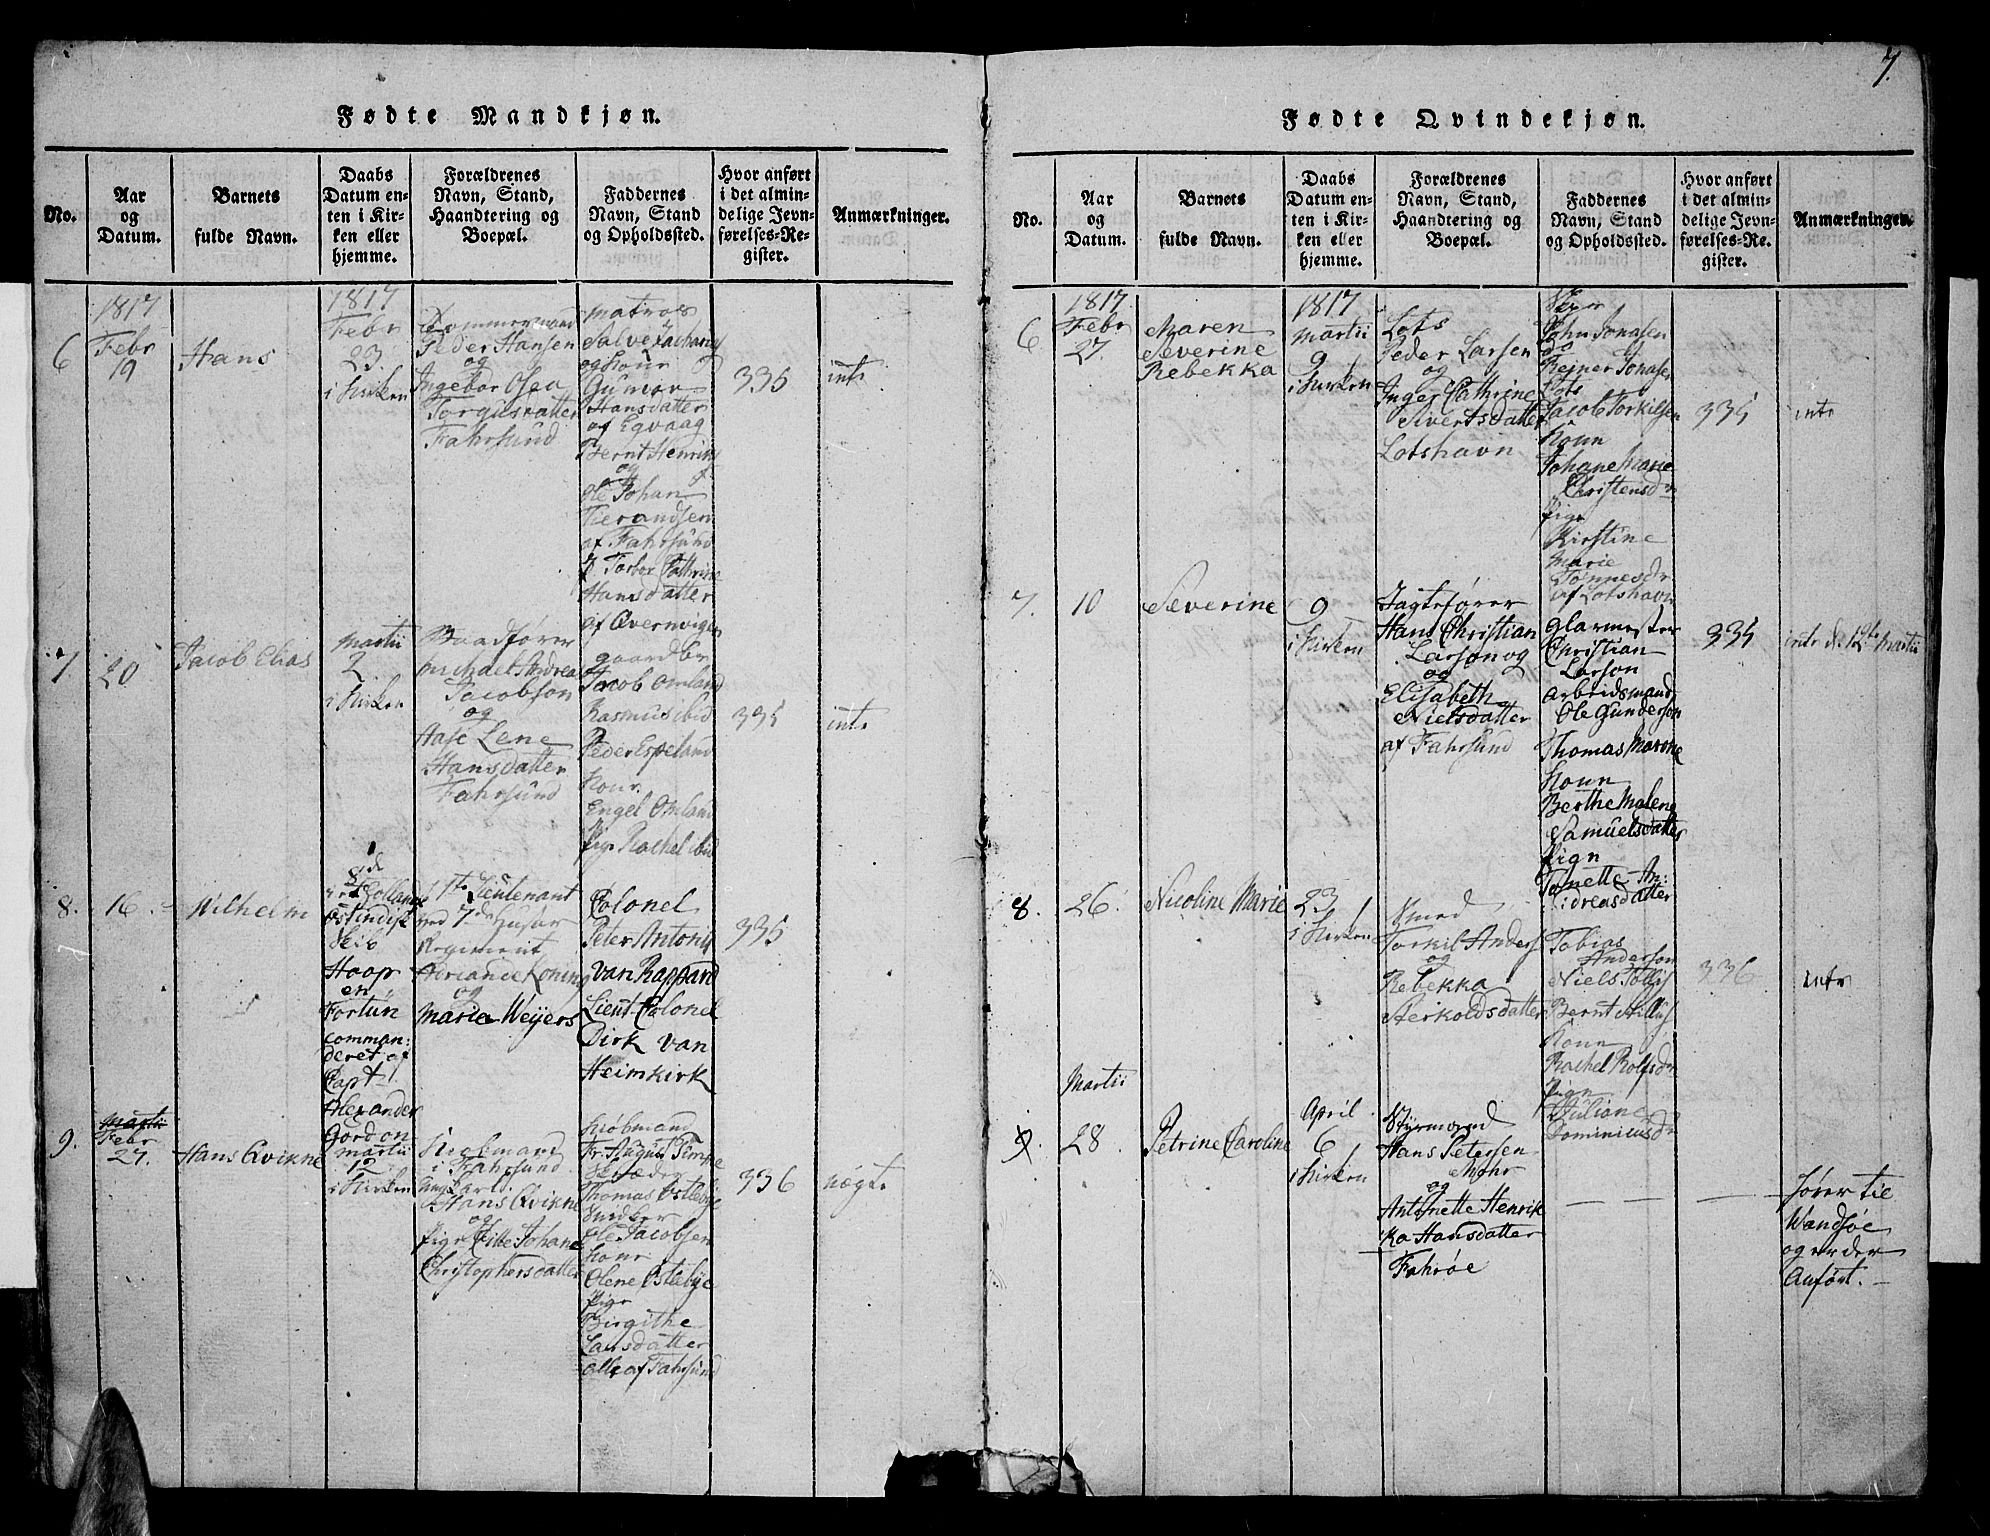 7.
Fødte Mandkjøn.
No.
Aar
og
Datum.
Barnets
fulde Navn.
Daabs
Datum en-
ten i Kir-
ken eller
hjemme.
Forældrenes
Navn, Stand,
Haandtering og
Boepæl.
Faddernes
Navn, Stand
og Opholdssted.
Hvor anført
i det almin-
delige Jevn-
førelses-Re-
gister.
Anmærkninger.
6
1817
Febr
19
Hans
1817
Febr
23.
i Kirken
Tømmermand
Peder Hansen
og
Ingebor Olea
Torgusdatter
Fahrsund
Matros
og Kone
Gunnor
Hansdatter
af Egvaag
Bernt Henrik
og
Ole Johan
Tierandsen
af Fahrsund
Torbor Cathrine
Hansdatter
af Qvernvigen
335
intr
7.
20
Jacob Elias
Martii
2
i Kirken
Baadfører
Michael Andreas
Jacobson
og
Aase Lene
Hansdatter
Fahrsund
gaardbr
Jacob Omland
Rasmus ibid
Peder Espeland
Kone
Engel Omland
Pige Rachel ibid
335
intr
8.
16.
Wilhelm
Ostindisk
Skib
Haap
en
Fortun
comman:
deret af
Capt
Alexander
Gordon
1te Lieutenant
ved 7de Husar
Regiment
Adrian de Koning
og
Maria Weyers
Colonel
Peter Antony
van Rappard
Lieut-Colonel
Dirk van
Heimkirk
335
9.
Martii
Febr
27.
Hans Qvikne
martii
12
i Kirken
i Fahrsund
Ungkarld.
Hans Qvikne
og
Pige Citte Johane
Christophersdatter
Kiøbmand
Fr: August
Thomas Østebye
Snidker
Ole Jacobsen
Kone
Olene Østebye
Pige
Birgithe
Larsdatter
alle af Fahrsund
336
nægte
Fødte Qvindekjøn.
No.
Aar
og
Datum.
Barnets
fulde Navn.
Daabs
Datum en-
ten i Kir-
ken eller
hjemme.
Forældrenes
Navn, Stand,
Haandtering og
Boepæl.
Faddernes
Navn, Stand
og Opholdssted.
Hvor anført
i det almin-
delige Jevn-
førelses-Re.
gister.
Anmærkninger.
6
1817.
Febr
27.
Maren
Severine
Rebekka
1817
Martii
9
i Kirken
Lots
Peder Larsen
og
Inger Cathrine
Sivertsdatter
Lotshavn
John Jonasen
do
Rejner Jonasen
Lots
Jacob Torkilsen
Kone
Johane Marie
Christensdr
Pige
Kirstine
Marie
Tønnesdr
af Lotshavn
335
intr
7.
10
Severine
9
i Kirken
Jagtefører
Hans Christian
Larson og
og
Elisabeth
Nielsdatter
af Fahrsund
Glarmester
Christian
Larson
Arbeidsmand
Ole Gunderson
Thomas
Kone
Berthe Malene
Samuelsdatter
Pige
Tonette An:
dreasdatter
335
intr d. 12te Martii
8.
26.
Nicoline Marie
23
i Kirken
Smed
Torkil Anders
og
Rebekka
Aerkoldsdatter
Tobias
Anderson
Niels
Bernt
Kone
Rachel Rolfsdr
Pige
Juliane
Dominicusdr
336
intr
9.
Martii
28.
Petrine Caroline
April
6
i Kirken
Styrmand
Hans Petersen
Mohr
og
Antonette Henrik
ka Hansdatter
Fahrøe
hører til
Wandsøe
og er der
Anført. -